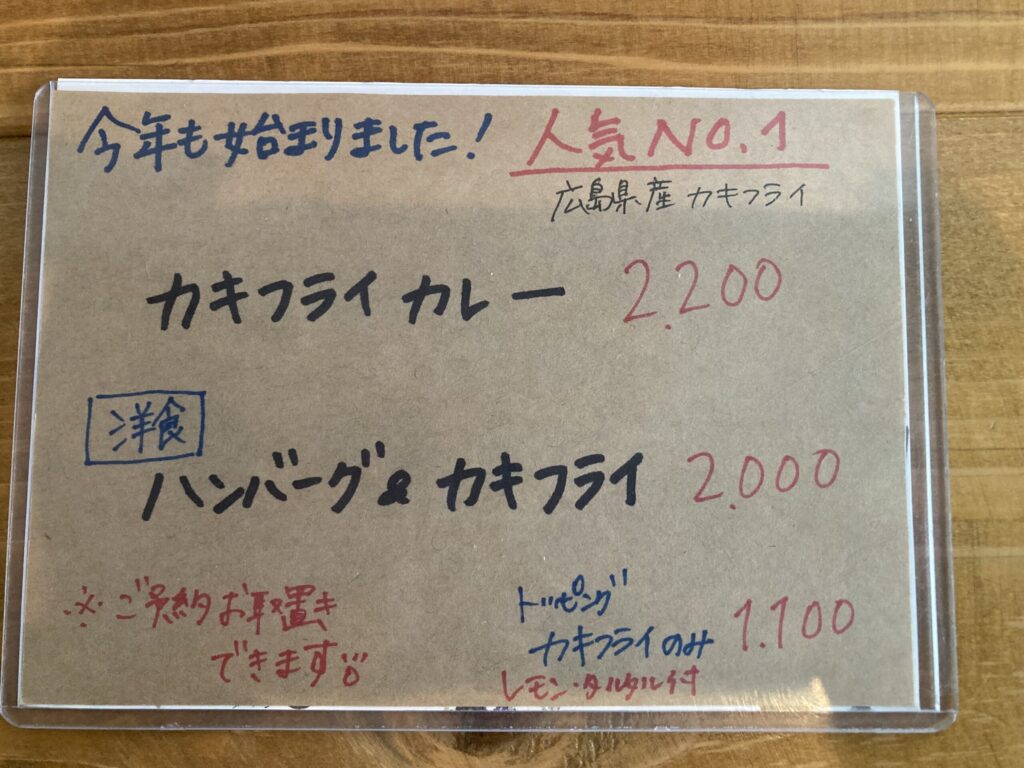 今年も始まりました!
人気NO.1
広島県産 カキフライ
カキフライ カレー 2.200
洋食
ハンバーグ& カキフライ 2.000
※ご予約お取置き
できます。
トッピング
カキフライのみ 1.100
レモン・タルタル付